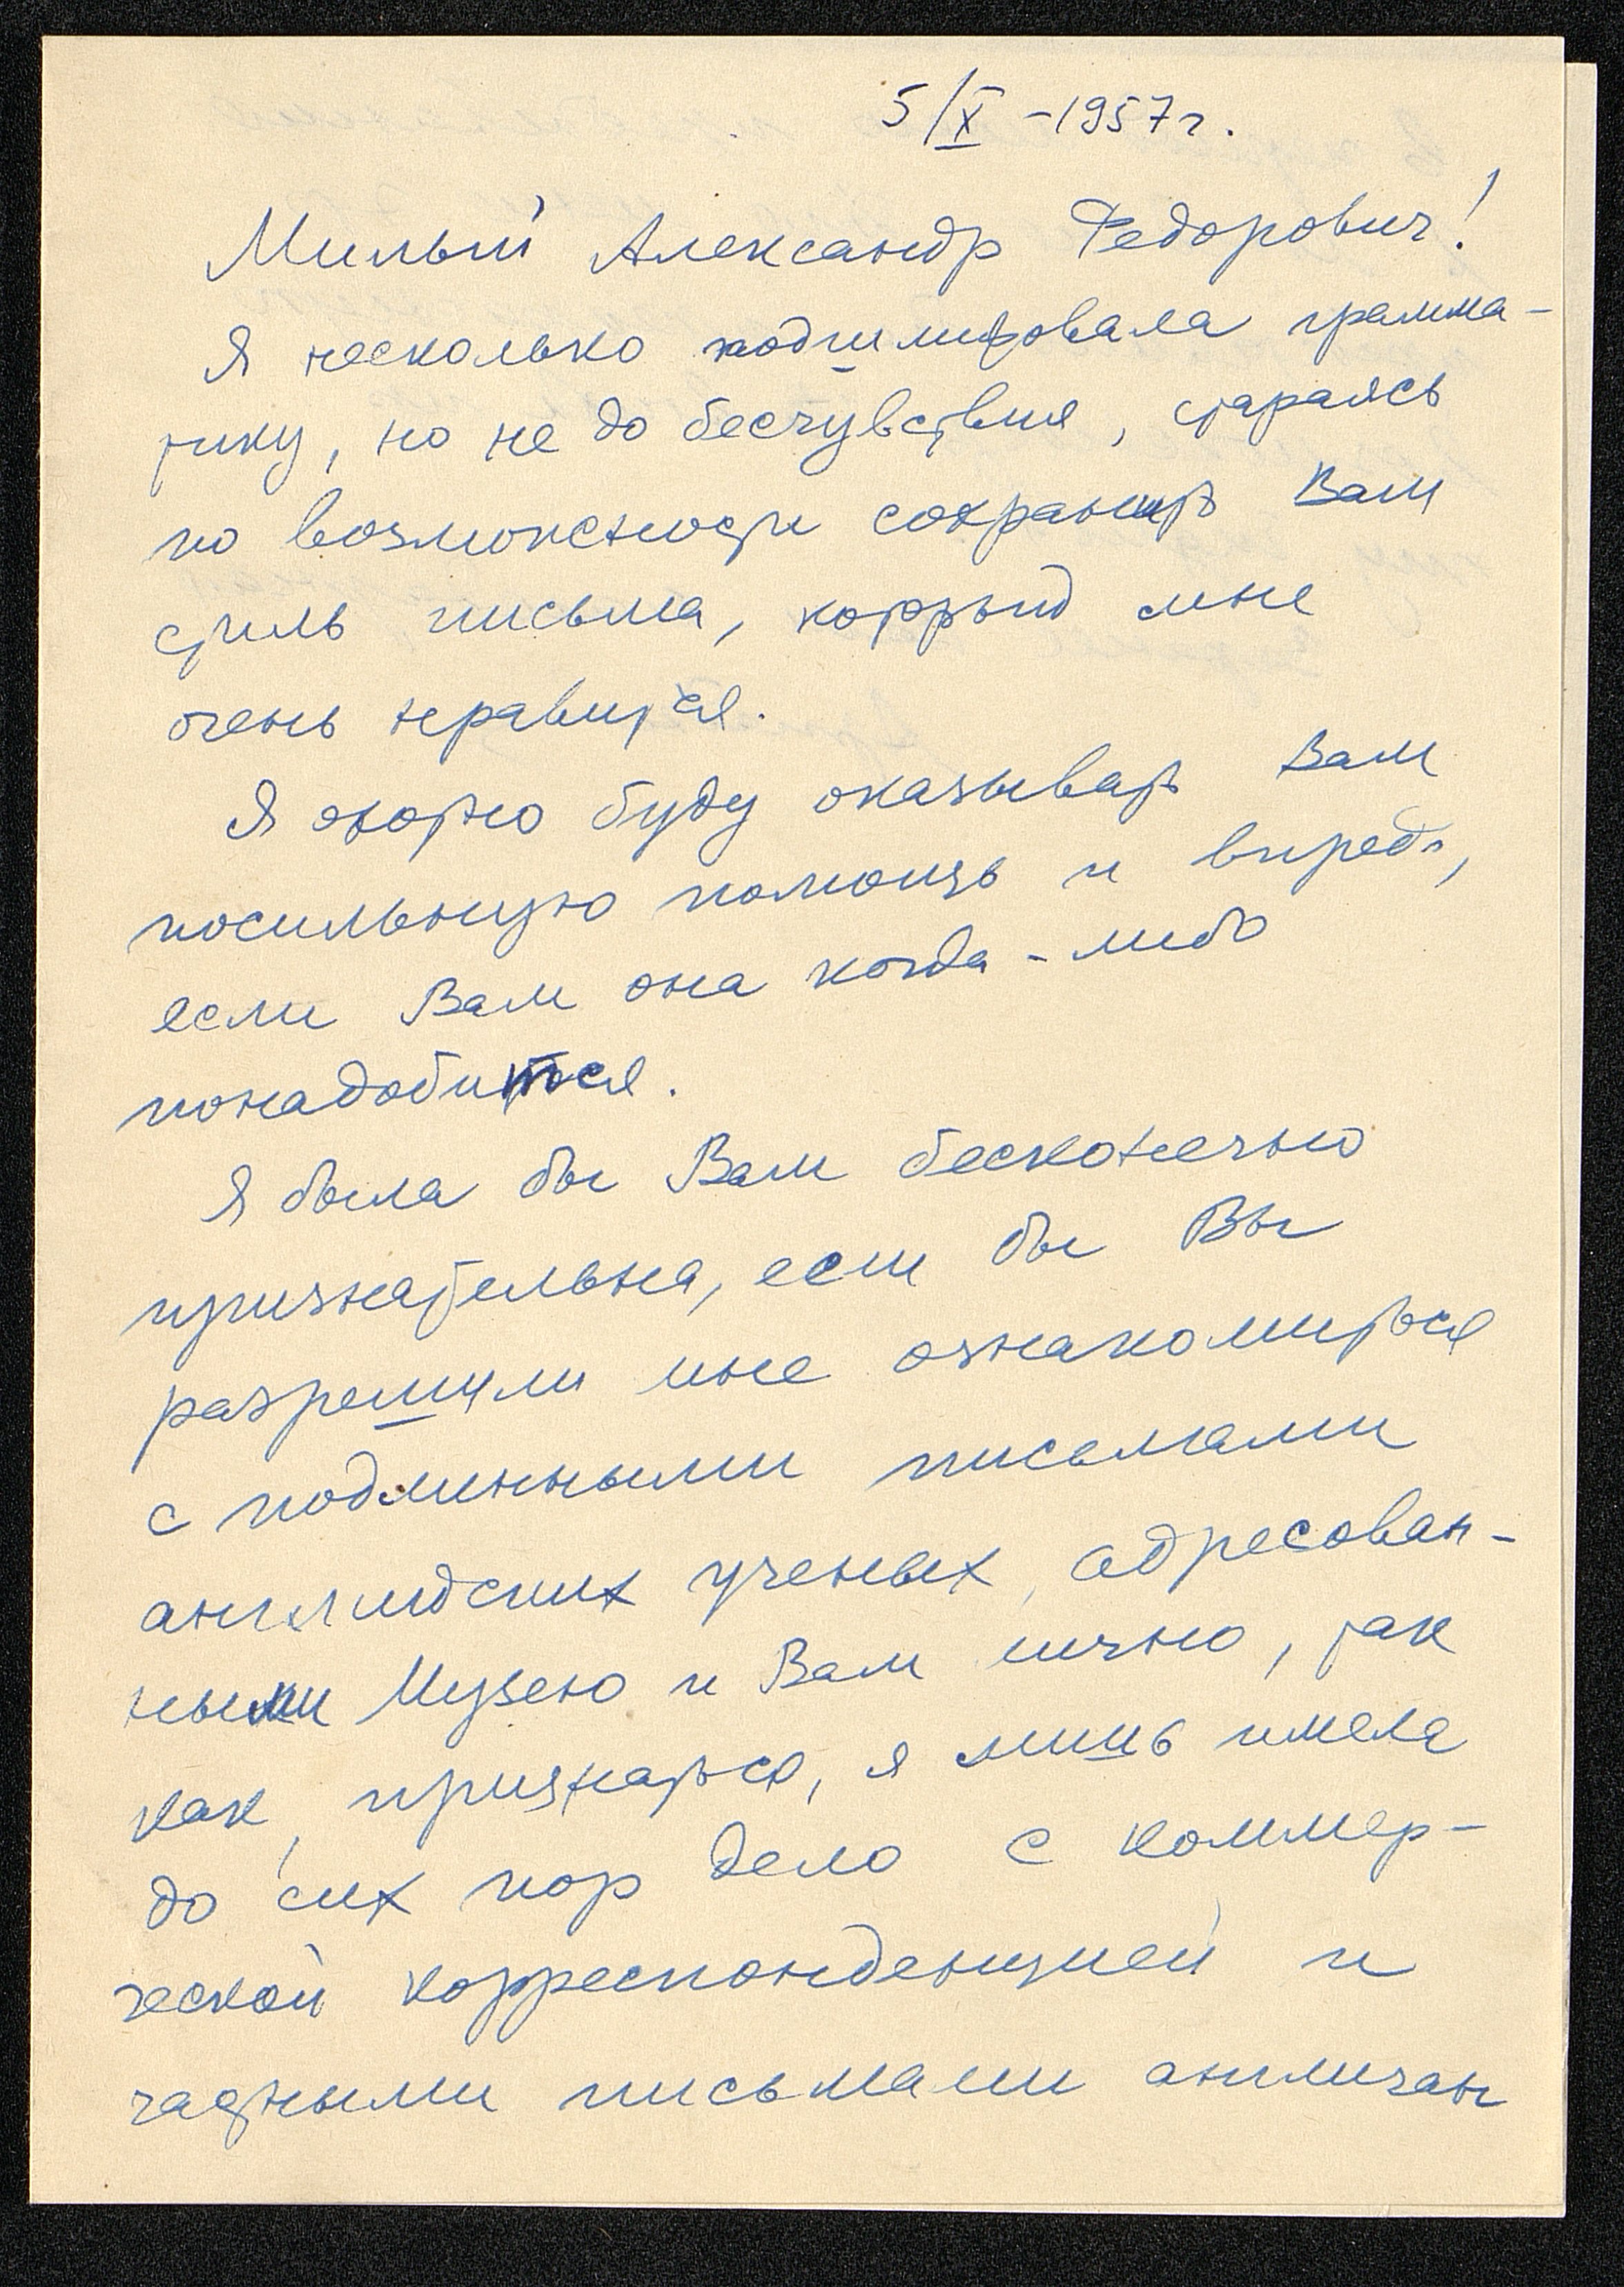 5/X - 1957 г.
Милый Александр Федорович!
Я несколько подшлифовала грамма-
тику, но не до бесчувствия, стараясь
по возможности сохранить Ваш
стиль письма, который мне
очень нравится.
Я охотно буду оказывать Вам
посильную помощь и впредь,
если Вам она когда-либо
понадобится.
Я была бы Вам бесконечно
признательна, если бы Вы
разрешили мне ознакомиться
с подлинными письмами
английских ученых, адресован-
ными Музею и Вам лично, так
как, признаться, я лишь имела
до сих пор дело с коммер-
ческой корреспонденцией и
частными письмами англичан